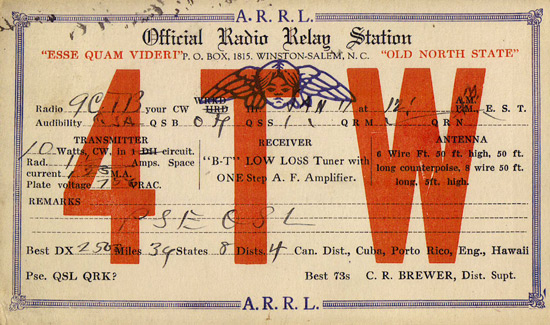 A.R.R.L.
Official Radio Relay Station
"ESSE QUAM VIDERI" P. O. BOX, 1815. WINSTON-SALEM, N. C. "OLD NORTH STATE"
4TW
WRKD
Radio your CW HRD at E. S. T.
Audibility QSB QSS QRM QRN
TRANSMITTER RECEIVER ANTENNA
10 Watts, CW, in circuit. 6 Wire Ft. 50 ft. high, 50 ft.
Rad. Amps. Space "B-T" LOW LOSS Tuner with long counterpoise, 8 wire 50 ft.
current M.A. ONE Step A. F. Amplifier. long, 5ft. high.
Plate voltage RAC.
REMARKS
PSE QSL
Best DX 2500 Miles 34 States 8 Dists. 4 Can. Dist., Cuba, Porto Rico, Eng., Hawaii
Pse. QSL QRK? Best 73s C. R. BREWER, Dist. Supt.
A.R.R.L.